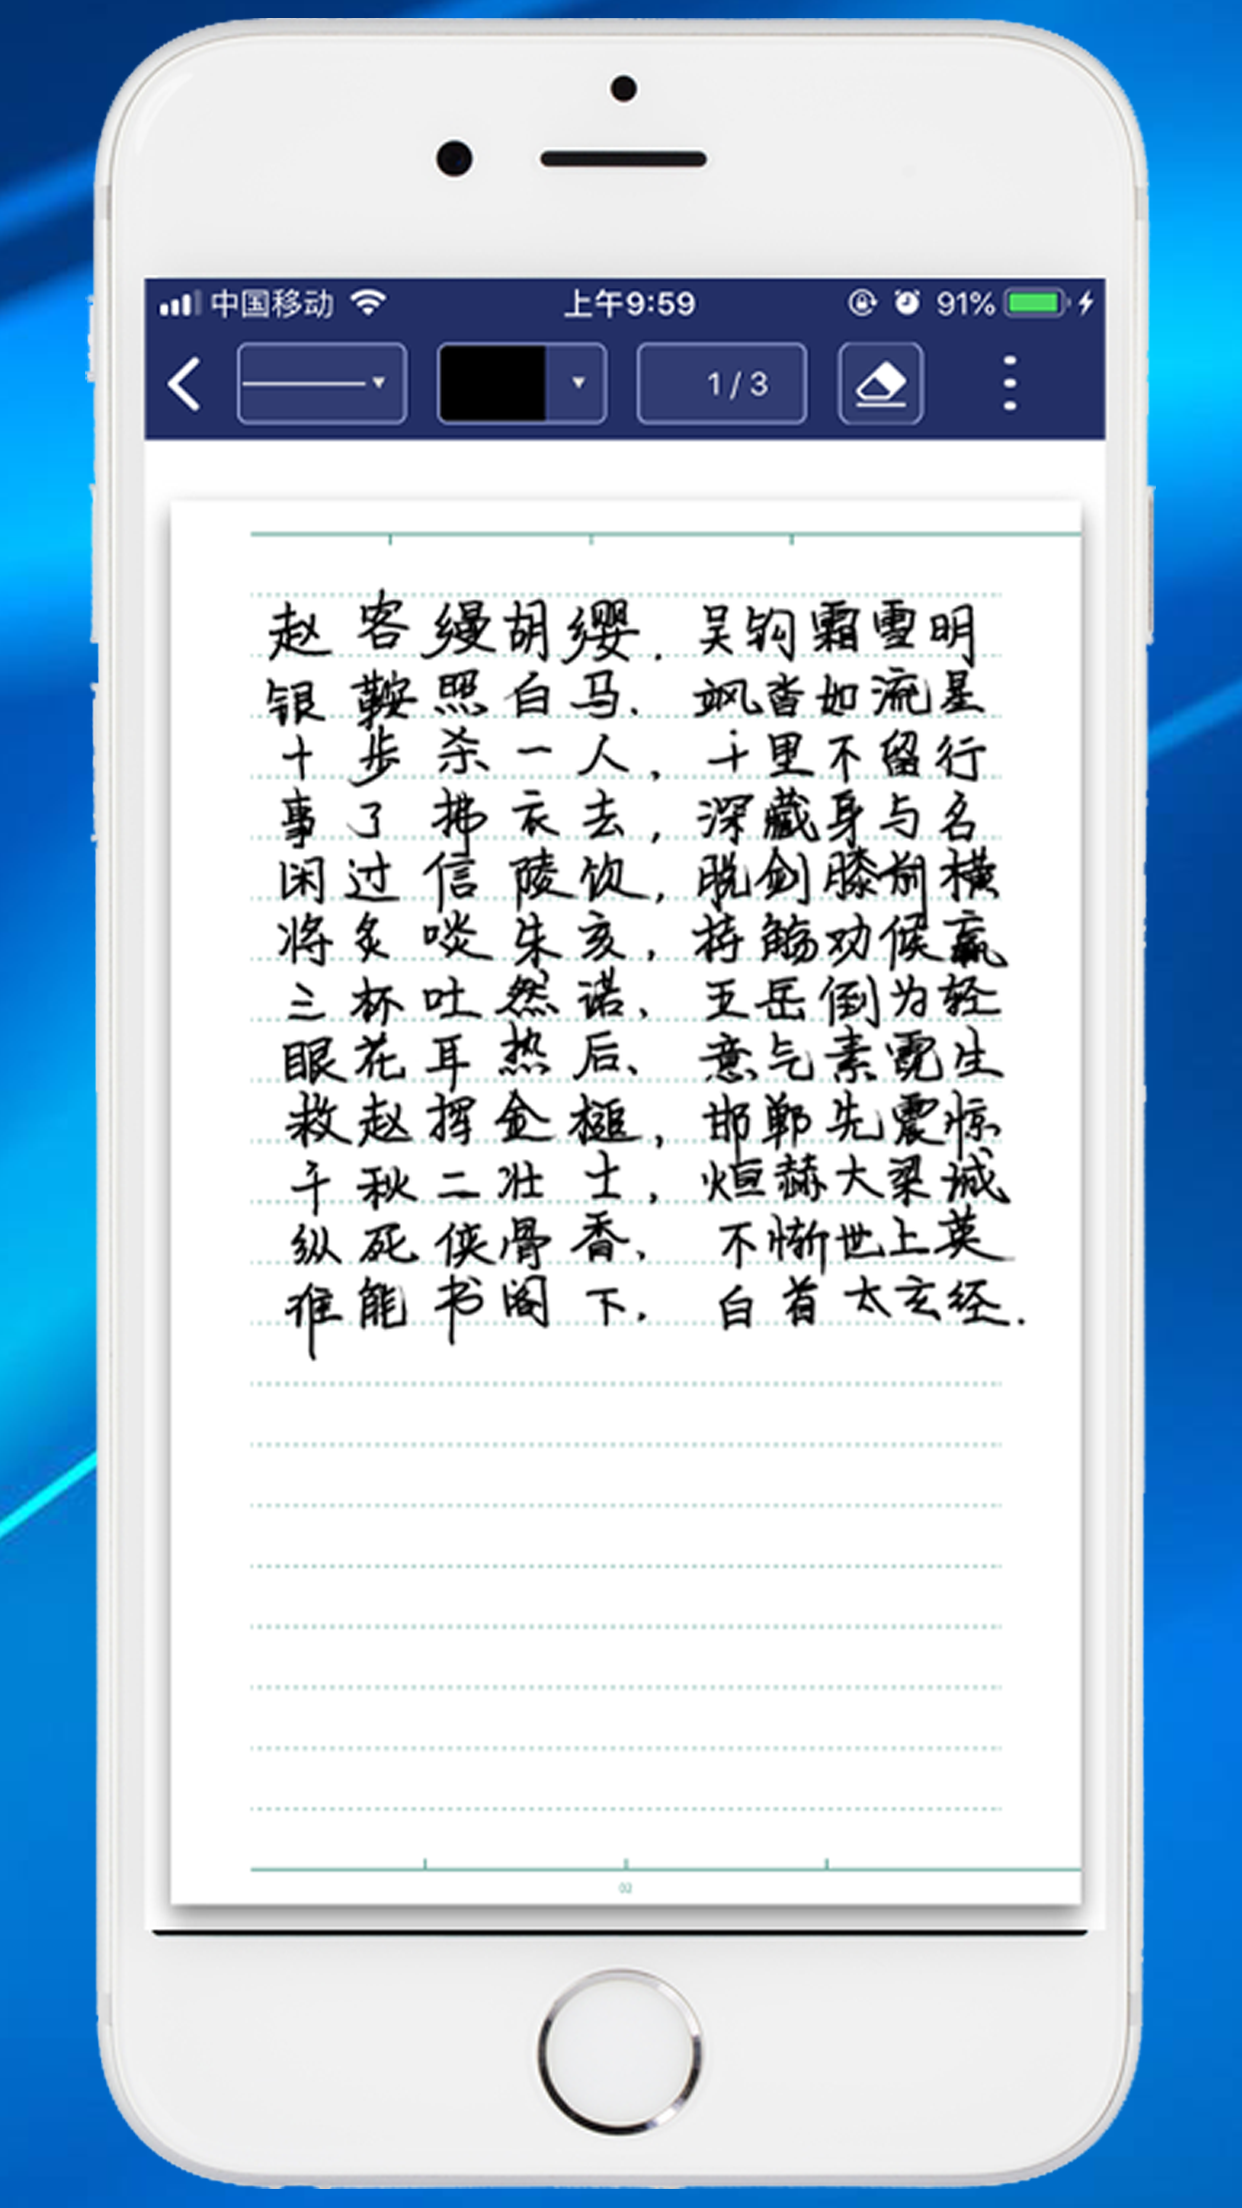 中国移动 上午9:59 91%
1 / 3
赵客缦胡缨,吴钩霜雪明
银鞍照白马,飒沓如流星
十步杀一人,千里不留行
事了拂衣去,深藏身与名
闲过信陵饮,脱剑膝前横
将炙啖朱亥,持觞劝候嬴
三杯吐然诺,五岳倒为轻
眼花耳热后、意气素霓生
救赵挥金槌,邯郸先震惊
千秋二壮士,烜赫大梁城
纵死侠骨香,不惭世上英
谁能书阁下,白首太玄经.
02